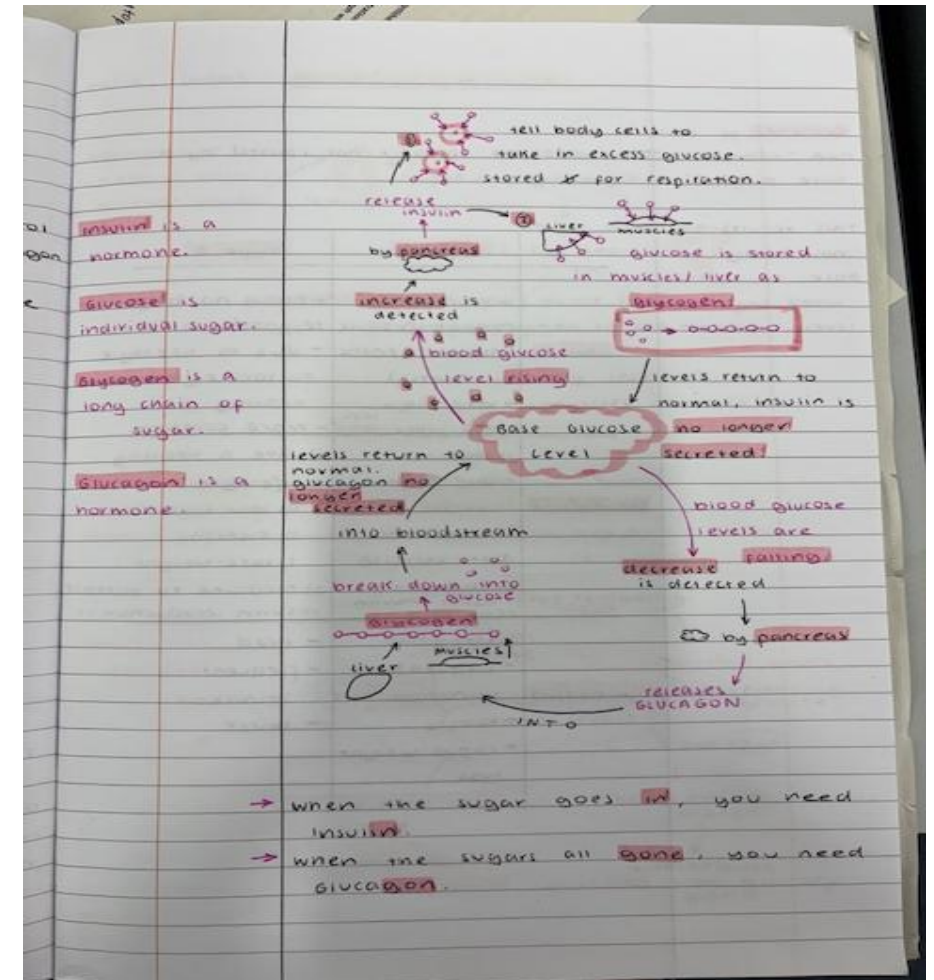 insulin is a
hormone.
Glucose is
individual sugar.
Glycogen is a
long chain of
sugar.
Glucagon is a
hormone.
①
tell body cells to
take in excess glucose.
stored for respiration.
release
insulin
②
liver
muscles
glucose is stored
in muscles/liver as
glycogen
by pancreas
increase is
detected
blood glucose
level rising
levels return to
normal, insulin is
no longer
secreted
Base Glucose
Level
levels return to
normal.
glucagon no
longer
secreted
into bloodstream
break down into
glucose
Glycogen
muscles
liver
blood glucose
levels are
falling
decrease
is detected
by pancreas
releases
GLUCAGON
INTO
→ when the sugar goes in, you need
insulin.
→ when the sugars all gone, you need
Glucagon.